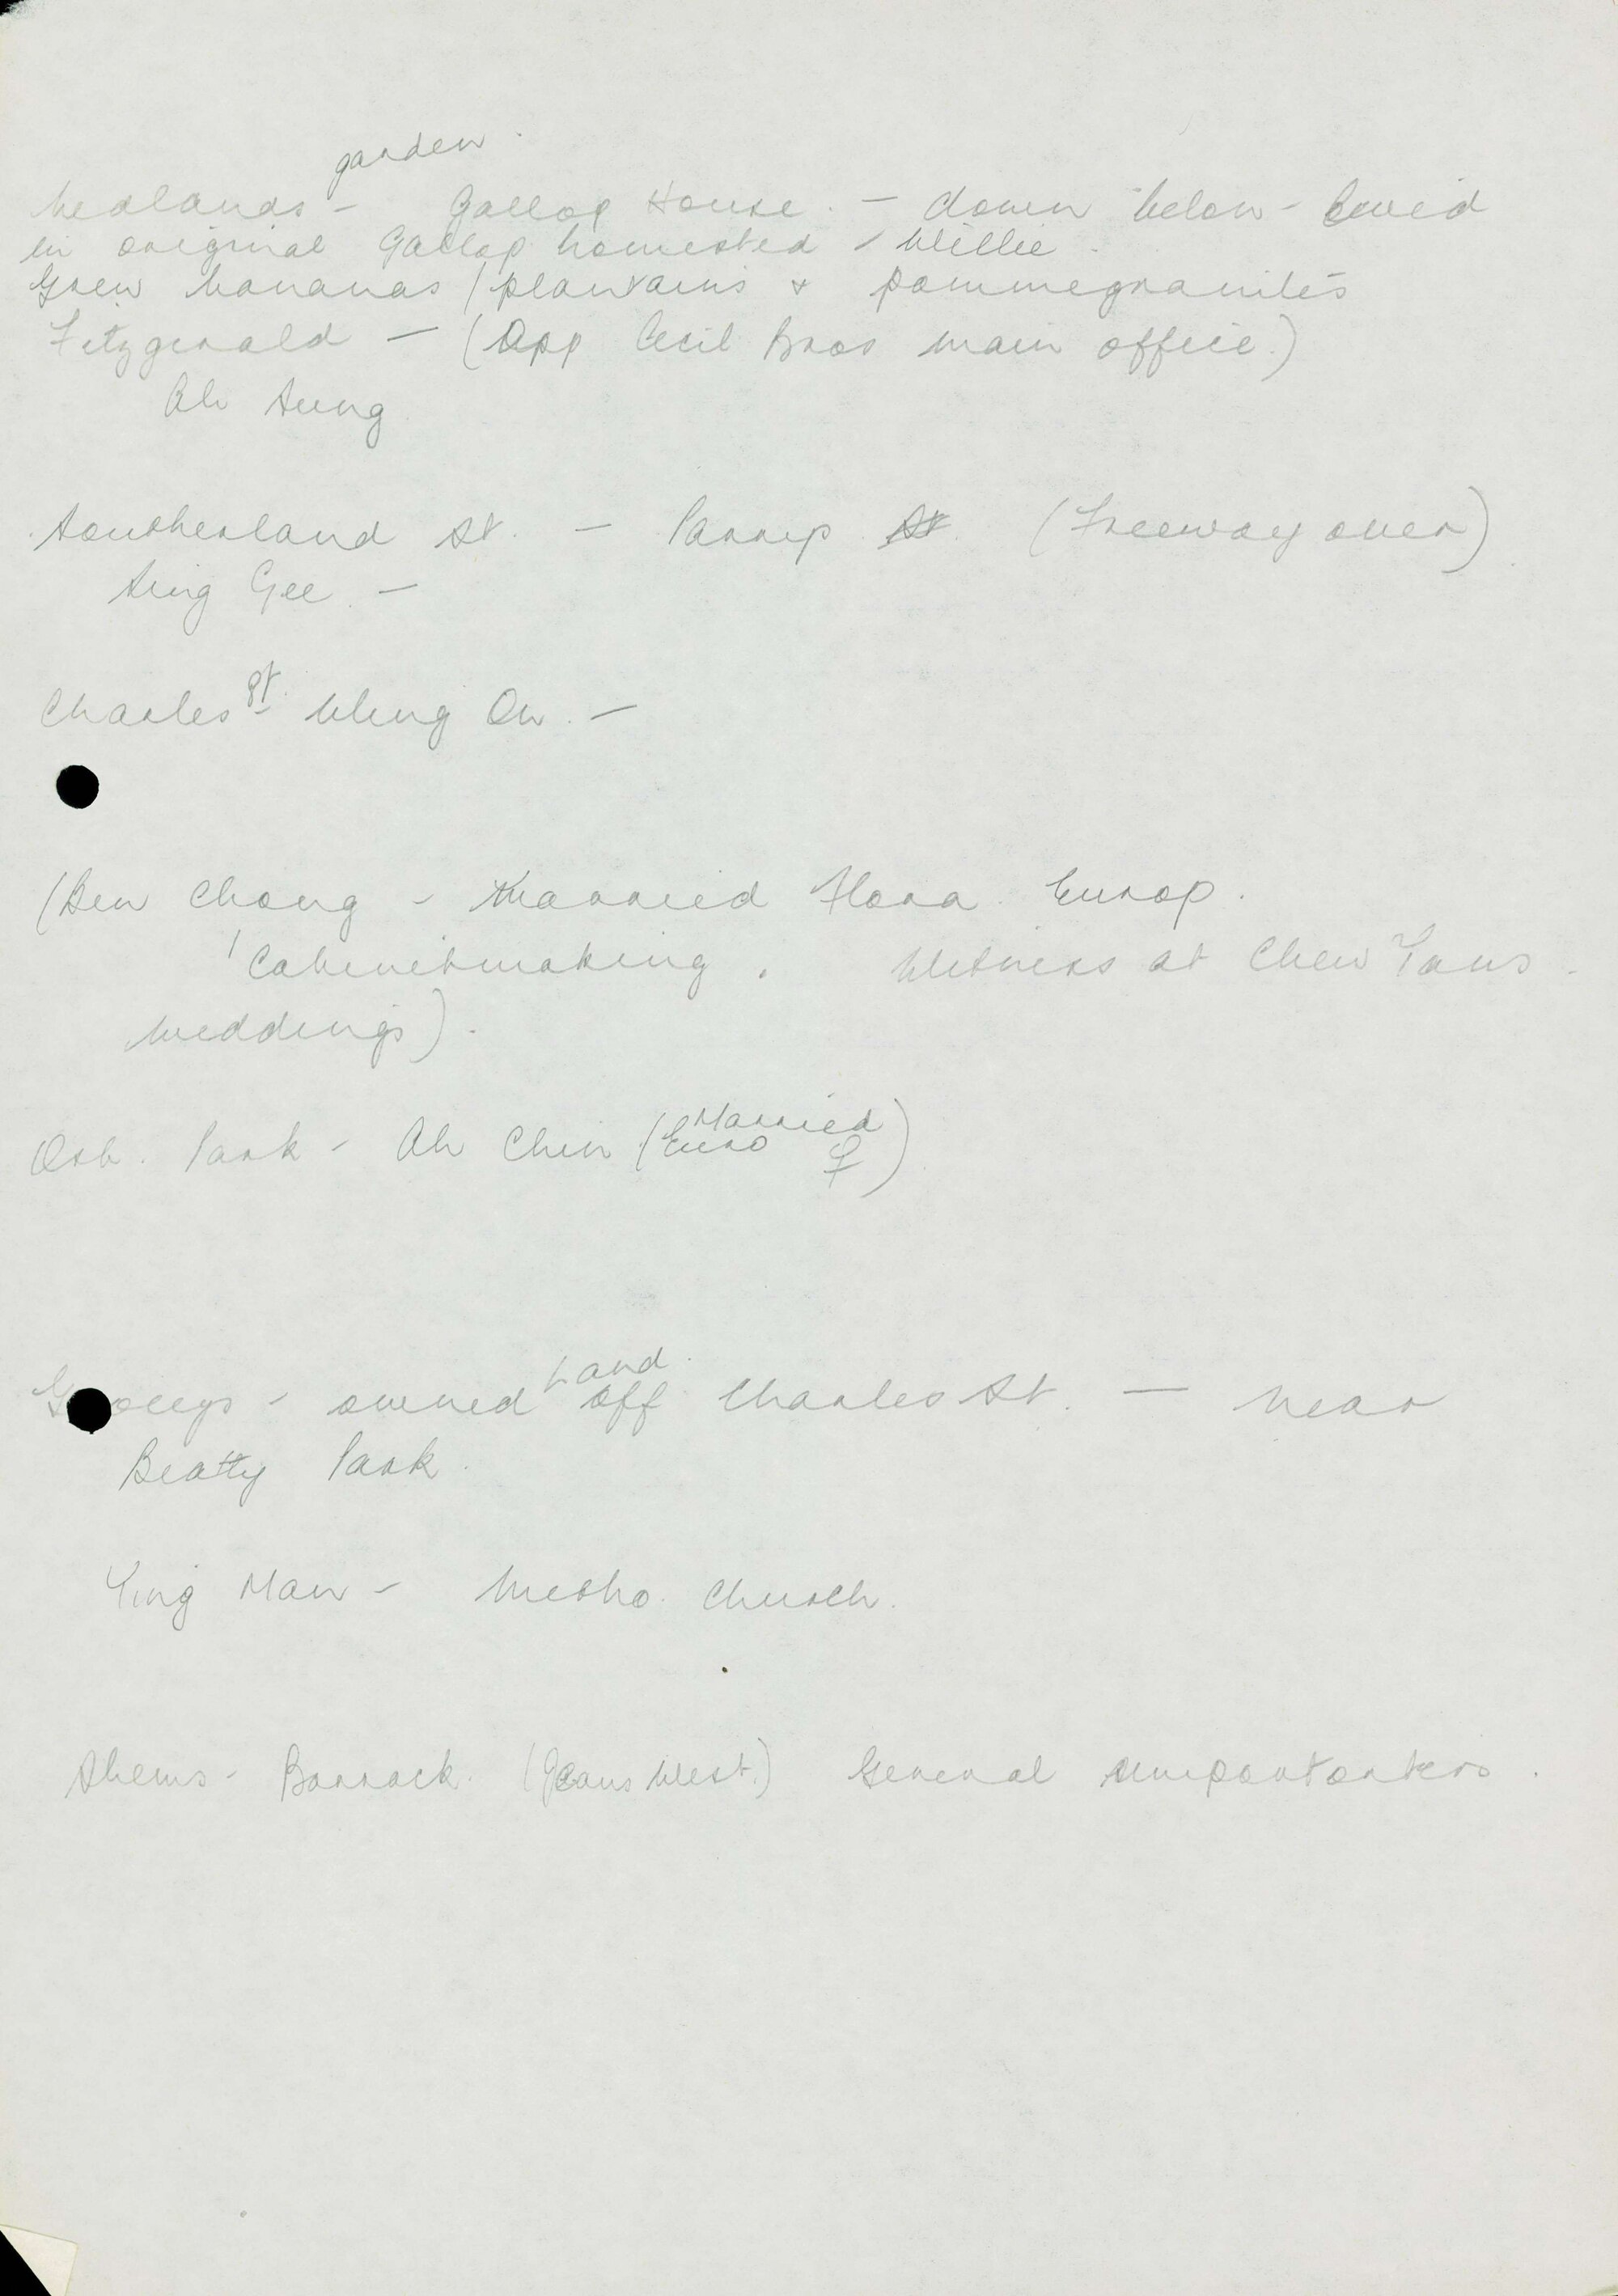 garden
Nedlands - Gallop House. - down below - lived
in original Gallop homested / Willie.
Grew bananas / plantains & pommegranites
Fitzgerald - (Opp Cecil Bros main office.)
Ah Sung
Southerland St. - Parrup St (Freeway over)
Sing Gee. -
Charles St - Wing On. -
(Ben Chong - Married Flora. Europ.
Cabinetmaking. Witness at Chew Tans
weddings).
Osb. Park - Ah Chin (Married
Euro ♀)
Land
owned off Charles St. - near
Beatty Park.
Ying Man - Metho. Church.
Shems - Barrack. (Jeans West.) General